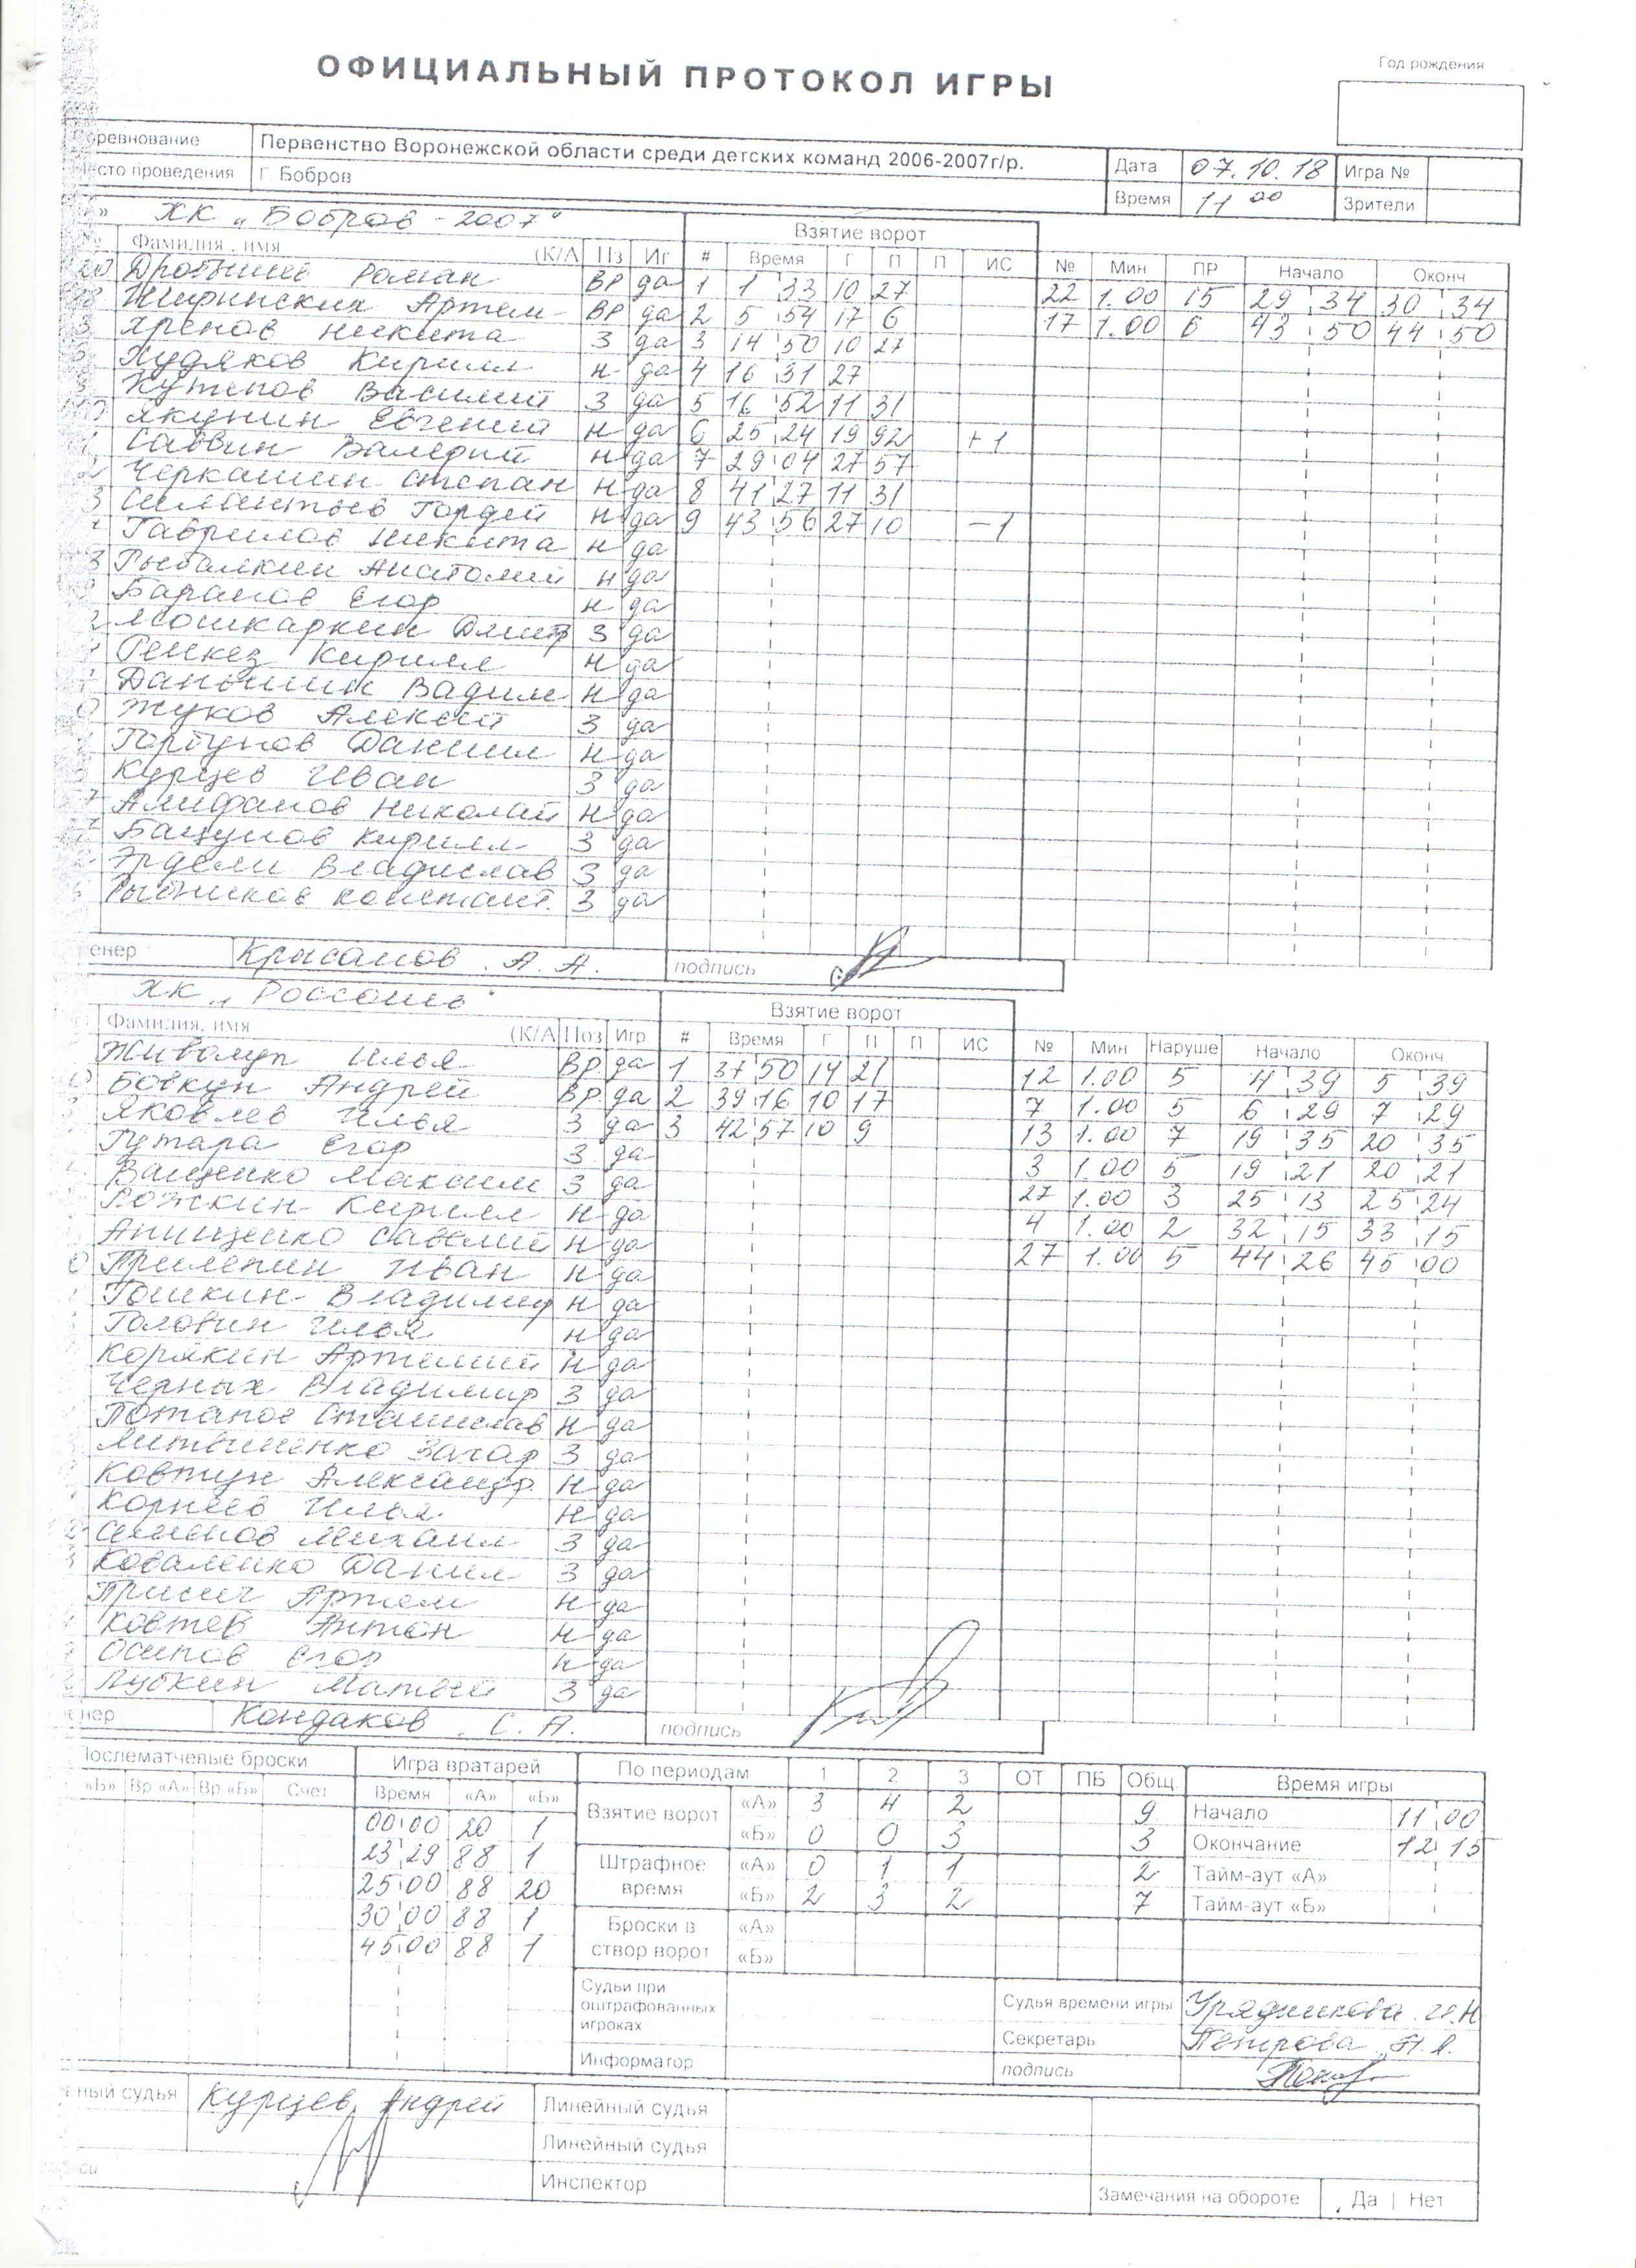 ОФИЦИАЛЬНЫЙ ПРОТОКОЛ ИГРЫ
Год рождения
Первенство Воронежской области среди детских команд 2006-2007г/р.
Дата 07.10.18 Игра №
проведения Г Бобров
Время 11 00 Зрители
ХК „Бобров - 2007"
Взятие ворот
Фамилия, имя (К/А Пз Иг # Время Г П П ИС № Мин ПР Начало Оконч
20 Роман ВР да 1 1 33 10 27 22 1.00 15 29 34 30 34
Артем ВР да 2 5 54 17 6 17 1.00 6 43 50 44 50
Хренов Никита З да 3 14 50 10 27
Худяков Кирилл н да 4 16 31 27
Кутепов Василий З да 5 16 52 11 31
Якунин Евгений н да 6 25 24 19 92 +1
Саввин Валерий н да 7 29 04 27 57
Черкашин Степан н да 8 41 27 11 31
Гордей н да 9 43 56 27 10 -1
Гаврилов Никита н да
Рыбалкин Анатолий н да
Баранов Егор н да
Мошкаркин З да
Кирилл н да
Даньшин Вадим н да
Жуков Алексей З да
Горбунов Даниил н да
Курцев Иван З да
Николай н да
Кирилл З да
Эрдели Владислав З да
З да
Крысанов . А. А. подпись
ХК „Россошь"
Взятие ворот
Фамилия, имя (К/А Поз Игр # Время Г П П ИС № Мин Наруше Начало Оконч
Илья ВР да 1 37 50 14 21 12 1.00 5 4 39 5 39
Бовкун Андрей ВР да 2 39 16 10 17 7 1.00 5 6 29 7 29
Яковлев Илья З да 3 42 57 10 9 13 1.00 7 19 35 20 35
Егор З да 3 1.00 5 19 21 20 21
Ващенко Максим З да 27 1.00 3 25 13 25 24
Рожкин Кирилл н да 4 1.00 2 32 15 33 15
Анищенко Савелий н да 27 1.00 5 44 26 45 00
Прилепин Иван н да
Владимир н да
Головин Илья н да
Корякин Артемий н да
Черных Владимир З да
Потапов Станислав н да
Литвиненко Захар З да
Ковтун Александр н да
Корнеев Илья н да
Семенов Михаил З да
Коваленко Данил З да
Артем н да
Антон н да
Осипов Егор н да
Матвей З да
Кондаков . С. А. подпись
Послематчевые броски Игра вратарей По периодам 1 2 3 ОТ ПБ Общ Время игры
«Б» Вр «А» Вр «Б» Счет Время «А» «Б»
Взятие ворот «А» 3 4 2 9 Начало 11 00
00 00 20 1 «Б» 0 0 3 3 Окончание 12 15
23 29 88 1 Штрафное время «А» 0 1 1 2 Тайм-аут «А»
25 00 88 20 «Б» 2 3 2 7 Тайм-аут «Б»
30 00 88 1 Броски в створ ворот «А»
45 00 88 1 «Б»
Судьи при оштрафованных игроках
Судья времени игры
Секретарь Петрова
Информатор
подпись
судья Курцев Андрей Линейный судья
Линейный судья
Инспектор
Замечания на обороте Да | Нет